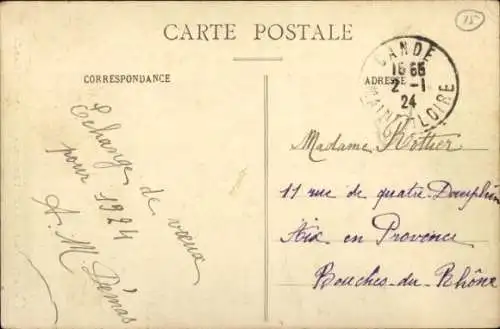 CARTE POSTALE
CORRESPONDANCE
ADRESSE
CANDÉ
2 -1
24
MAINE-ET-LOIRE
Echange de vœux
pour 1924
A. M. Démas
Madame Hottier
11 rue de quatre-Dauphin
Aix en Provence
Bouches-du-Rhône